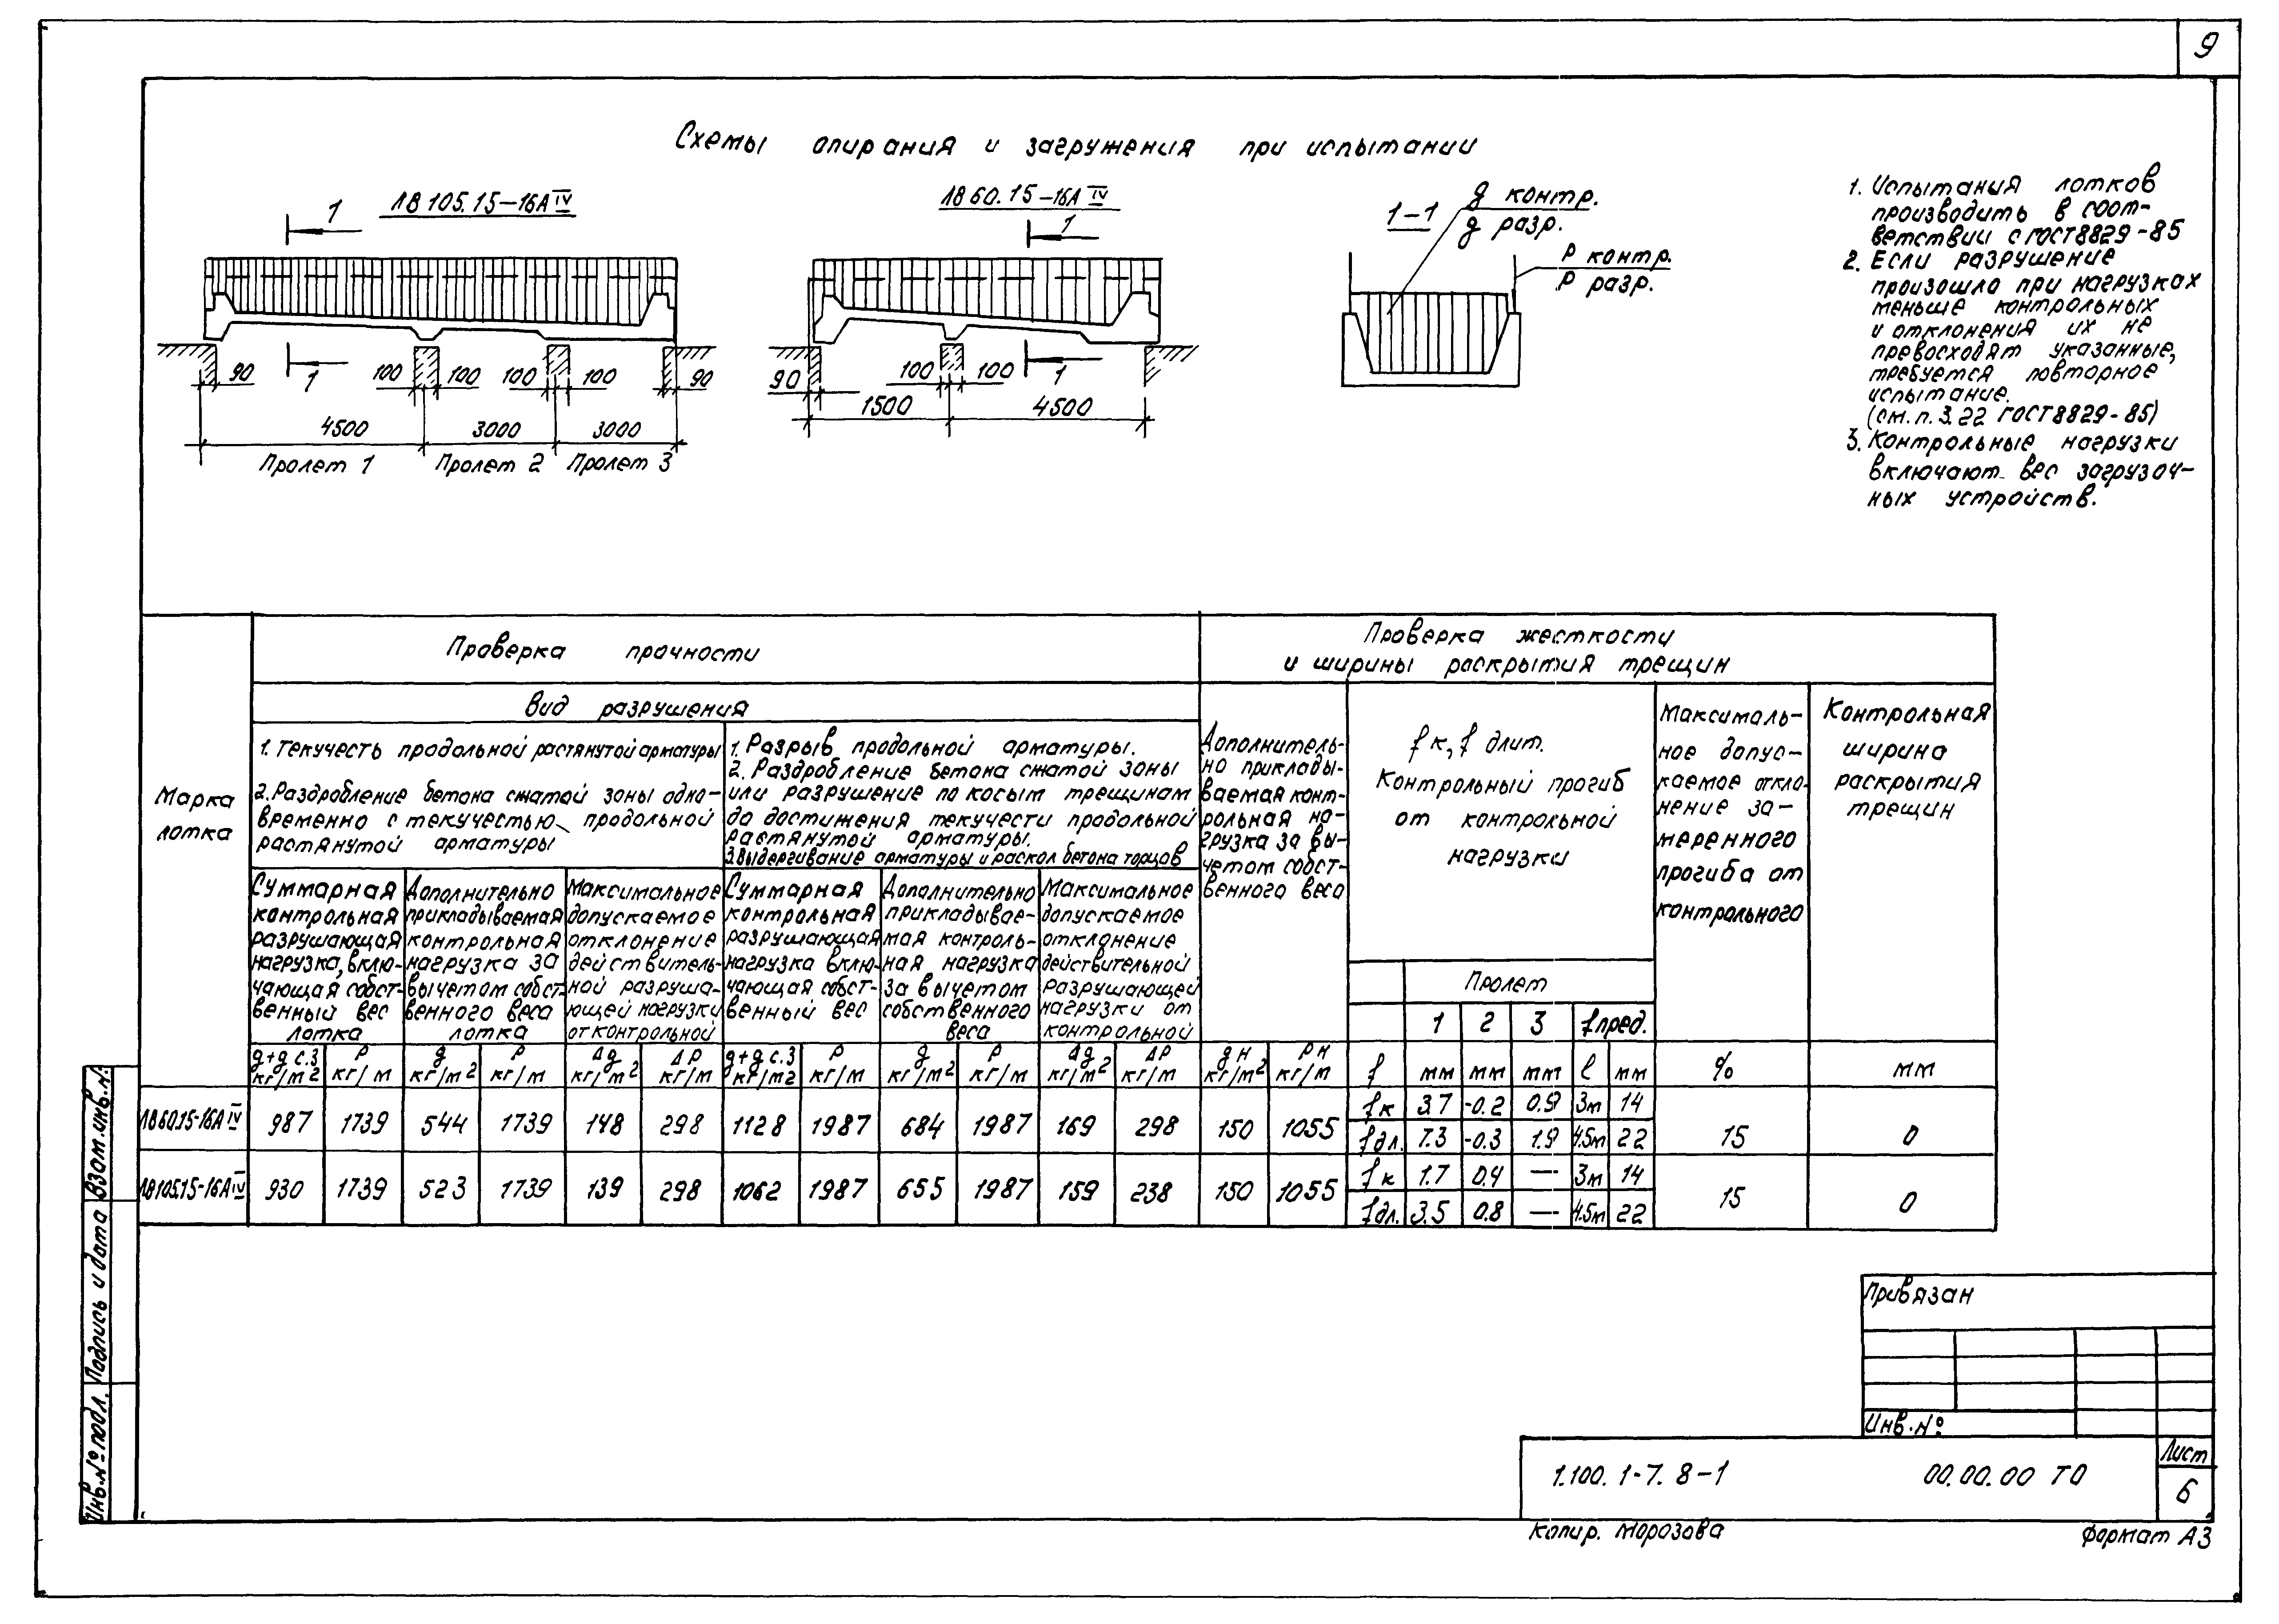 9
Схемы опирания и загружения при испытании
1
ЛВ 105.15-16АIV
90
1
100 100
100 100
90
4500 3000 3000
Пролет 1 Пролет 2 Пролет 3
ЛВ 60.15-16АIV
1
90
100 100
1
1500 4500
1-1
g контр.
g разр.
Р контр.
Р разр.
1. Испытания лотков
производить в соот-
ветствии с ГОСТ 8829-85
2. Если разрушение
произошло при нагрузках
меньше контрольных
и отклонения их не
превосходят указанные,
требуется повторное
испытание.
(см. п. 3.22 ГОСТ 8829-85)
3. Контрольные нагрузки
включают вес загрузоч-
ных устройств.
Марка
лотка
Проверка прочности
Вид разрушения
1. Текучесть продольной растянутой арматуры
2. Раздробление бетона сжатой зоны одно-
временно с текучестью продольной
растянутой арматуры
1. Разрыв продольной арматуры.
2. Раздробление бетона сжатой зоны
или разрушение по косым трещинам
до достижения текучести продольной
растянутой арматуры.
3. Выдергивание арматуры и раскол бетона торцов
Суммарная
контрольная
разрушающая
нагрузка, вклю-
чающая собст-
венный вес
лотка
Дополнительно
прикладываемая
контрольная
нагрузка за
вычетом собст-
венного веса
лотка
Максимальное
допускаемое
отклонение
действитель-
ной разруша-
ющей нагрузки
от контрольной
Суммарная
контрольная
разрушающая
нагрузка вклю-
чающая собст-
венный вес
Дополнительно
прикладывае-
мая контроль-
ная нагрузка
за вычетом
собственного
веса
Максимальное
допускаемое
отклонение
действительной
разрушающей
нагрузки от
контрольной
Проверка жесткости
и ширины раскрытия трещин
Дополнитель-
но приклады-
ваемая конт-
рольная на-
грузка за вы-
четом собст-
венного веса
fк, f длит.
Контрольный прогиб
от контрольной
нагрузки
Пролет
1 2 3 fпред.
Максималь-
ное допус-
каемое откло-
нение за-
меренного
прогиба от
контрольного
Контрольная
ширина
раскрытия
трещин
g+g с.з кг/м2 Р кг/м g кг/м2 Р кг/м Δg кг/м2 ΔР кг/м g+g с.з кг/м2 Р кг/м g кг/м2 Р кг/м Δg кг/м2 ΔР кг/м gн кг/м2 Рн кг/м f мм мм мм ℓ мм % мм
ЛВ60.15-16АIV 987 1739 544 1739 148 298 1128 1987 684 1987 169 298 150 1055 fк 3.7 -0.2 0.9 3м 14 15 0
fдл. 7.3 -0.3 1.9 4.5м 22
ЛВ105.15-16АIV 930 1739 523 1739 139 298 1062 1987 655 1987 159 238 150 1055 fк 1.7 0.4 — 3м 14 15 0
fдл. 3.5 0.8 — 4.5м 22
Привязан
Инв.№
1.100.1-7.8-1 00.00.00 ТО
Лист
6
Копир. Морозова
Формат А3
Инв.№ подл. Подпись и дата Взам.инв.№